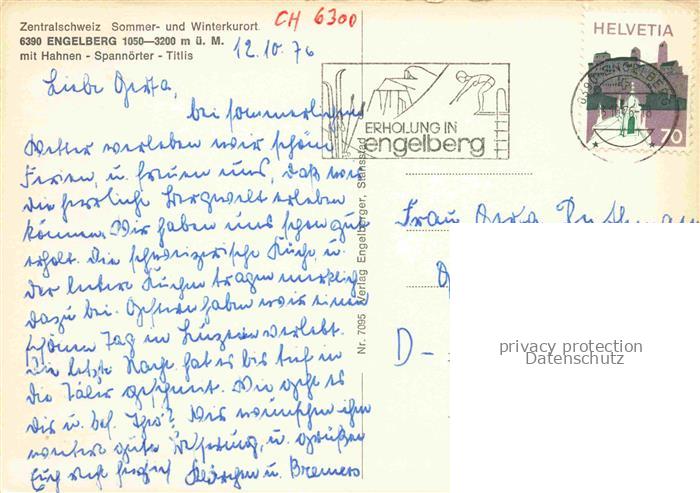 CH 6300
Zentralschweiz Sommer- und Winterkurort
6390 ENGELBERG 1050—3200 m ü. M.
mit Hahnen - Spannörter - Titlis
12.10.76
HELVETIA
70
ERHOLUNG IN
engelberg
Liebe Gerta,
bei sommerlichem
Wetter verleben wir schöne
Ferien, u. freuen uns, daß wir
die herrliche Bergwelt erleben
können. Wir haben uns schon gut
erholt. Die schweizerische Küche, u.
der leckere Kuchen tragen merklich
dazu bei. Gestern haben wir einen
schönen Tag in Luzern verlebt.
Die letzte Nacht hat es bis tief in
die Täler geschneit. Wie geht es
Dir u. bes. Wir wünschen ihm
weiter gute Besserung, u. grüßen
Euch recht herzlich Klärchen u. Bremers
Nr. 7095 Verlag Engelberger, Stansstad
Frau Gerta
D-
privacy protection
Datenschutz